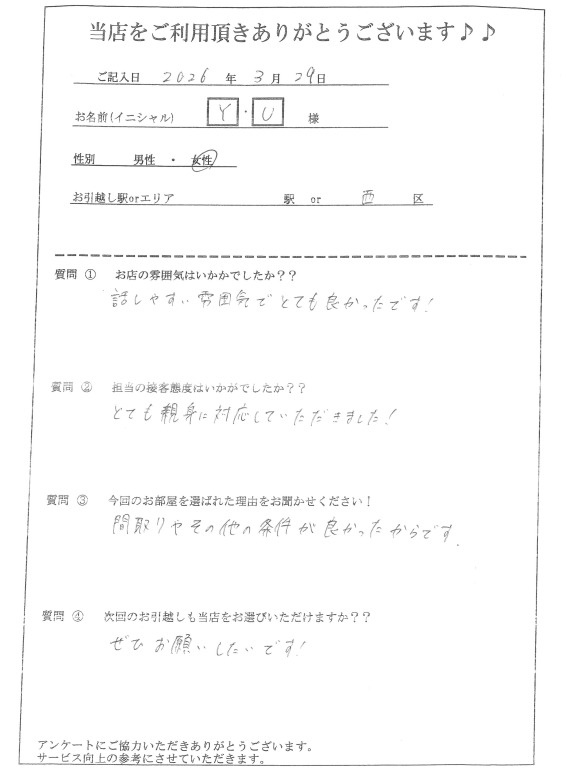 当店をご利用頂きありがとうございます♪♪
ご記入日 2026 年 3 月 29日
お名前(イニシャル) Y・U 様
性別 男性 ・ 女性
お引越し駅orエリア 駅 or 西 区
質問 ① お店の雰囲気はいかかでしたか??
話しやすい雰囲気でとても良かったです!
質問 ② 担当の接客態度はいかがでしたか??
とても親身に対応していただきました!
質問 ③ 今回のお部屋を選ばれた理由をお聞かせください!
間取りやその他の条件が良かったからです.
質問 ④ 次回のお引越しも当店をお選びいただけますか??
ぜひお願いしたいです!
アンケートにご協力いただきありがとうございます。
サービス向上の参考にさせていただきます。